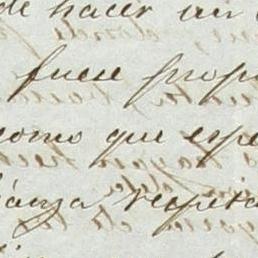 de hacer un
fuese prop
como que espe
ianza respeta